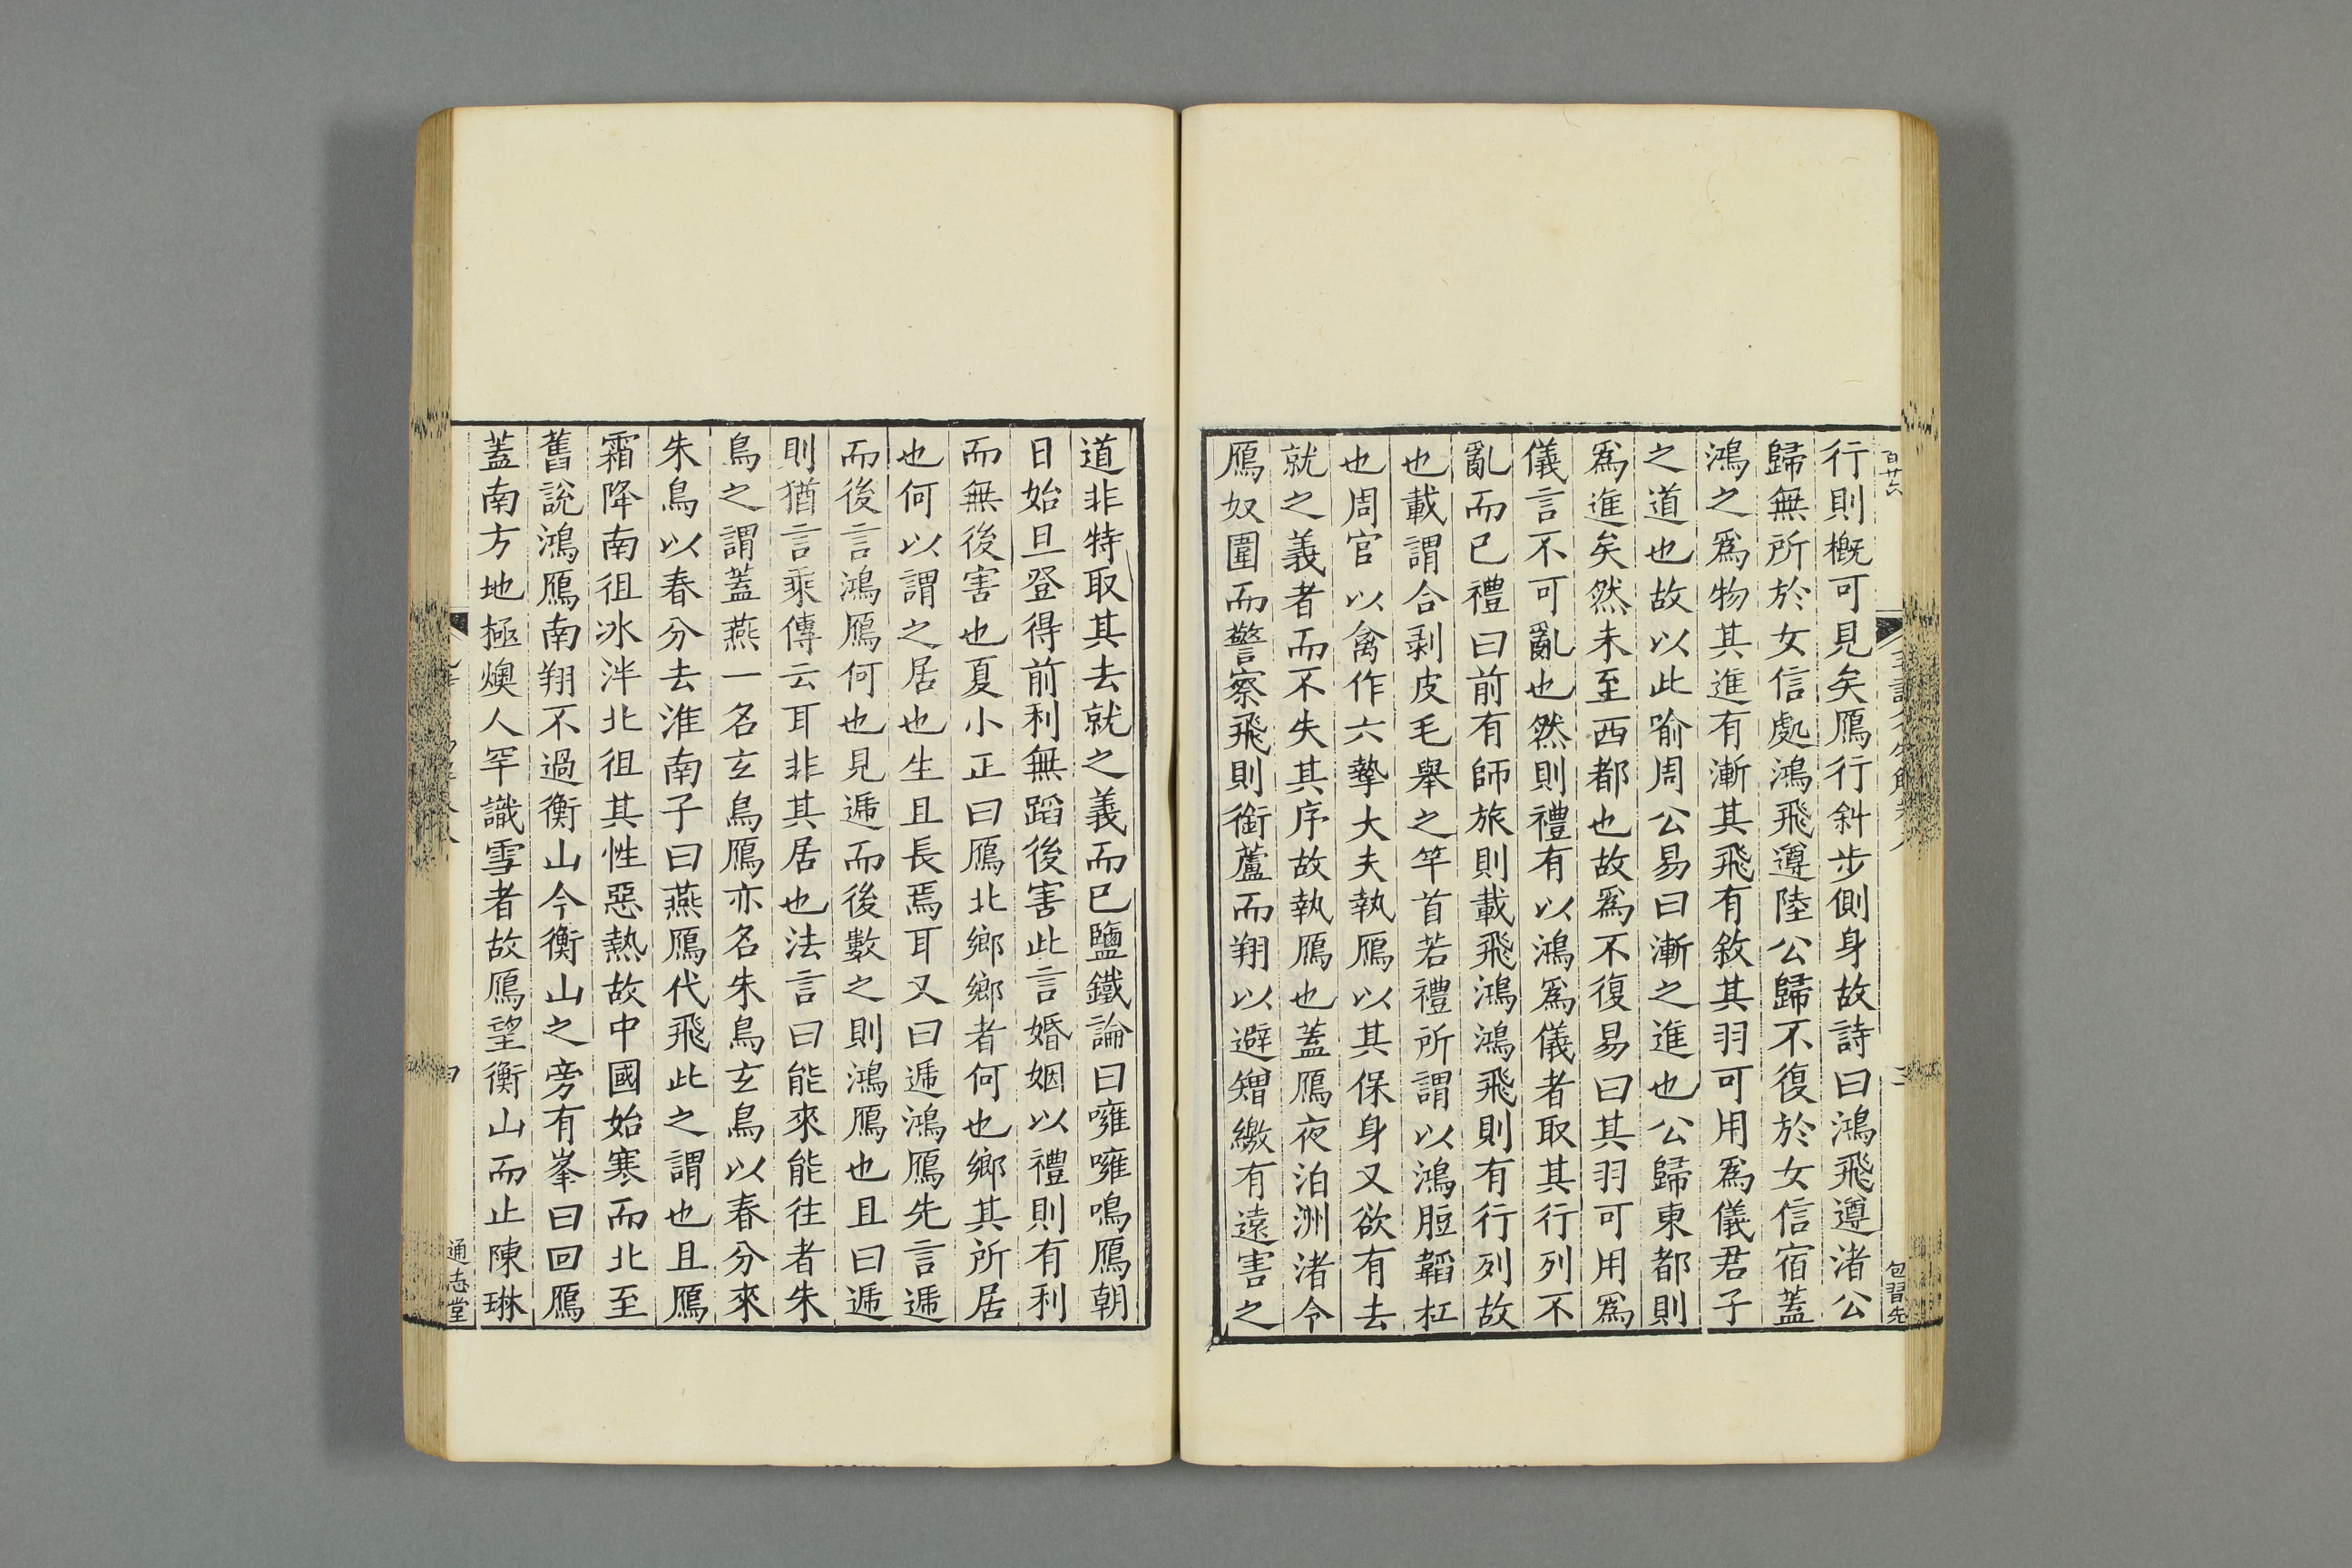 百廿六
包習先
行則槪可見矣鴈行斜步側身故詩曰鴻飛遵渚公
歸無所於女信處鴻飛遵陸公歸不復於女信宿蓋
鴻之爲物其進有漸其飛有敘其羽可用爲儀君子
之道也故以此喻周公易曰漸之進也公歸東都則
爲進矣然未至西都也故爲不復易曰其羽可用爲
儀言不可亂也然則禮有以鴻爲儀者取其行列不
亂而已禮曰前有師旅則載飛鴻鴻飛則有行列故
也載謂合剥皮毛舉之竿首若禮所謂以鴻脰韜杠
也周官以禽作六摯大夫執鴈以其保身又欲有去
就之義者而不失其序故執鴈也蓋鴈夜泊洲渚令
鴈奴圍而警察飛則銜蘆而翔以避矰繳有遠害之
道非特取其去就之義而已鹽鐵論曰嗈嗈鳴鴈朝
日始旦登得前利無蹈後害此言婚姻以禮則有利
而無後害也夏小正曰鴈北鄉鄉者何也鄉其所居
也何以謂之居也生且長焉耳又曰遞鴻鴈先言遞
而後言鴻鴈何也見遞而後數之則鴻鴈也且曰遞
則猶言乘傳云耳非其居也法言曰能來能往者朱
鳥之謂蓋燕一名玄鳥鴈亦名朱鳥玄鳥以春分來
朱鳥以春分去淮南子曰燕鴈代飛此之謂也且鴈
霜降南徂冰泮北徂其性惡熱故中國始寒而北至
舊說鴻鴈南翔不過衡山今衡山之旁有峯曰回鴈
蓋南方地極燠人罕識雪者故鴈望衡山而止陳琳
通志堂